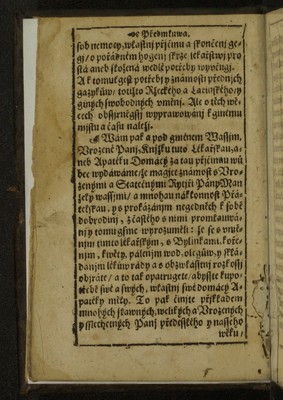 Předmluwa.
sob nemoty, wlastnj přjčinu a skončenj ge-
gj / o pořádném hogenj skrze lékařstwj pro
stá aneb složená wedlé potřeby wyučugj.
A k tomu gest potřebj y známosti předních
gazykůw / totižto Ržeckého a Latinského / y
giných swobodných vměnj. Ale o těch wě-
cech obssjrněgssj wyprawowánj k ginému
mjstu a času náležj.
Wám pak a pod gménem Wassjm,
Vrozené Panj, Knjžku tuto Lékařskau, a-
neb Apatéku Domácý za tau přjčinau wů
bec wydáwáme / že magjce známost s Vro-
zenými a Statečnými Rytjři Pány Man
žely wassjmi / a mnohau náklonnost Přá-
telskau, y s prokázánjm negedněch k sobě
dobrodinj, z častého s nimi promlauwá-
nj y tomu gsme wyrozuměli: že se s vmě-
njm tjmto lékařským, s Bylinkami, koře-
njm, kwěty, pálenjm wod, olegůw, y sklá-
danjm lékůw rády a s obzwlásstnj rozkossj
objráte / a to tak opatrugete / abysste ku potřebě
swé a swých, wlastnj swé domácý A-
patéky měly. To pak činjte přjkladem
mnohých slawných, welikých a Vrozených
y sslechetných Panj předesslého y nasseho
wěku /